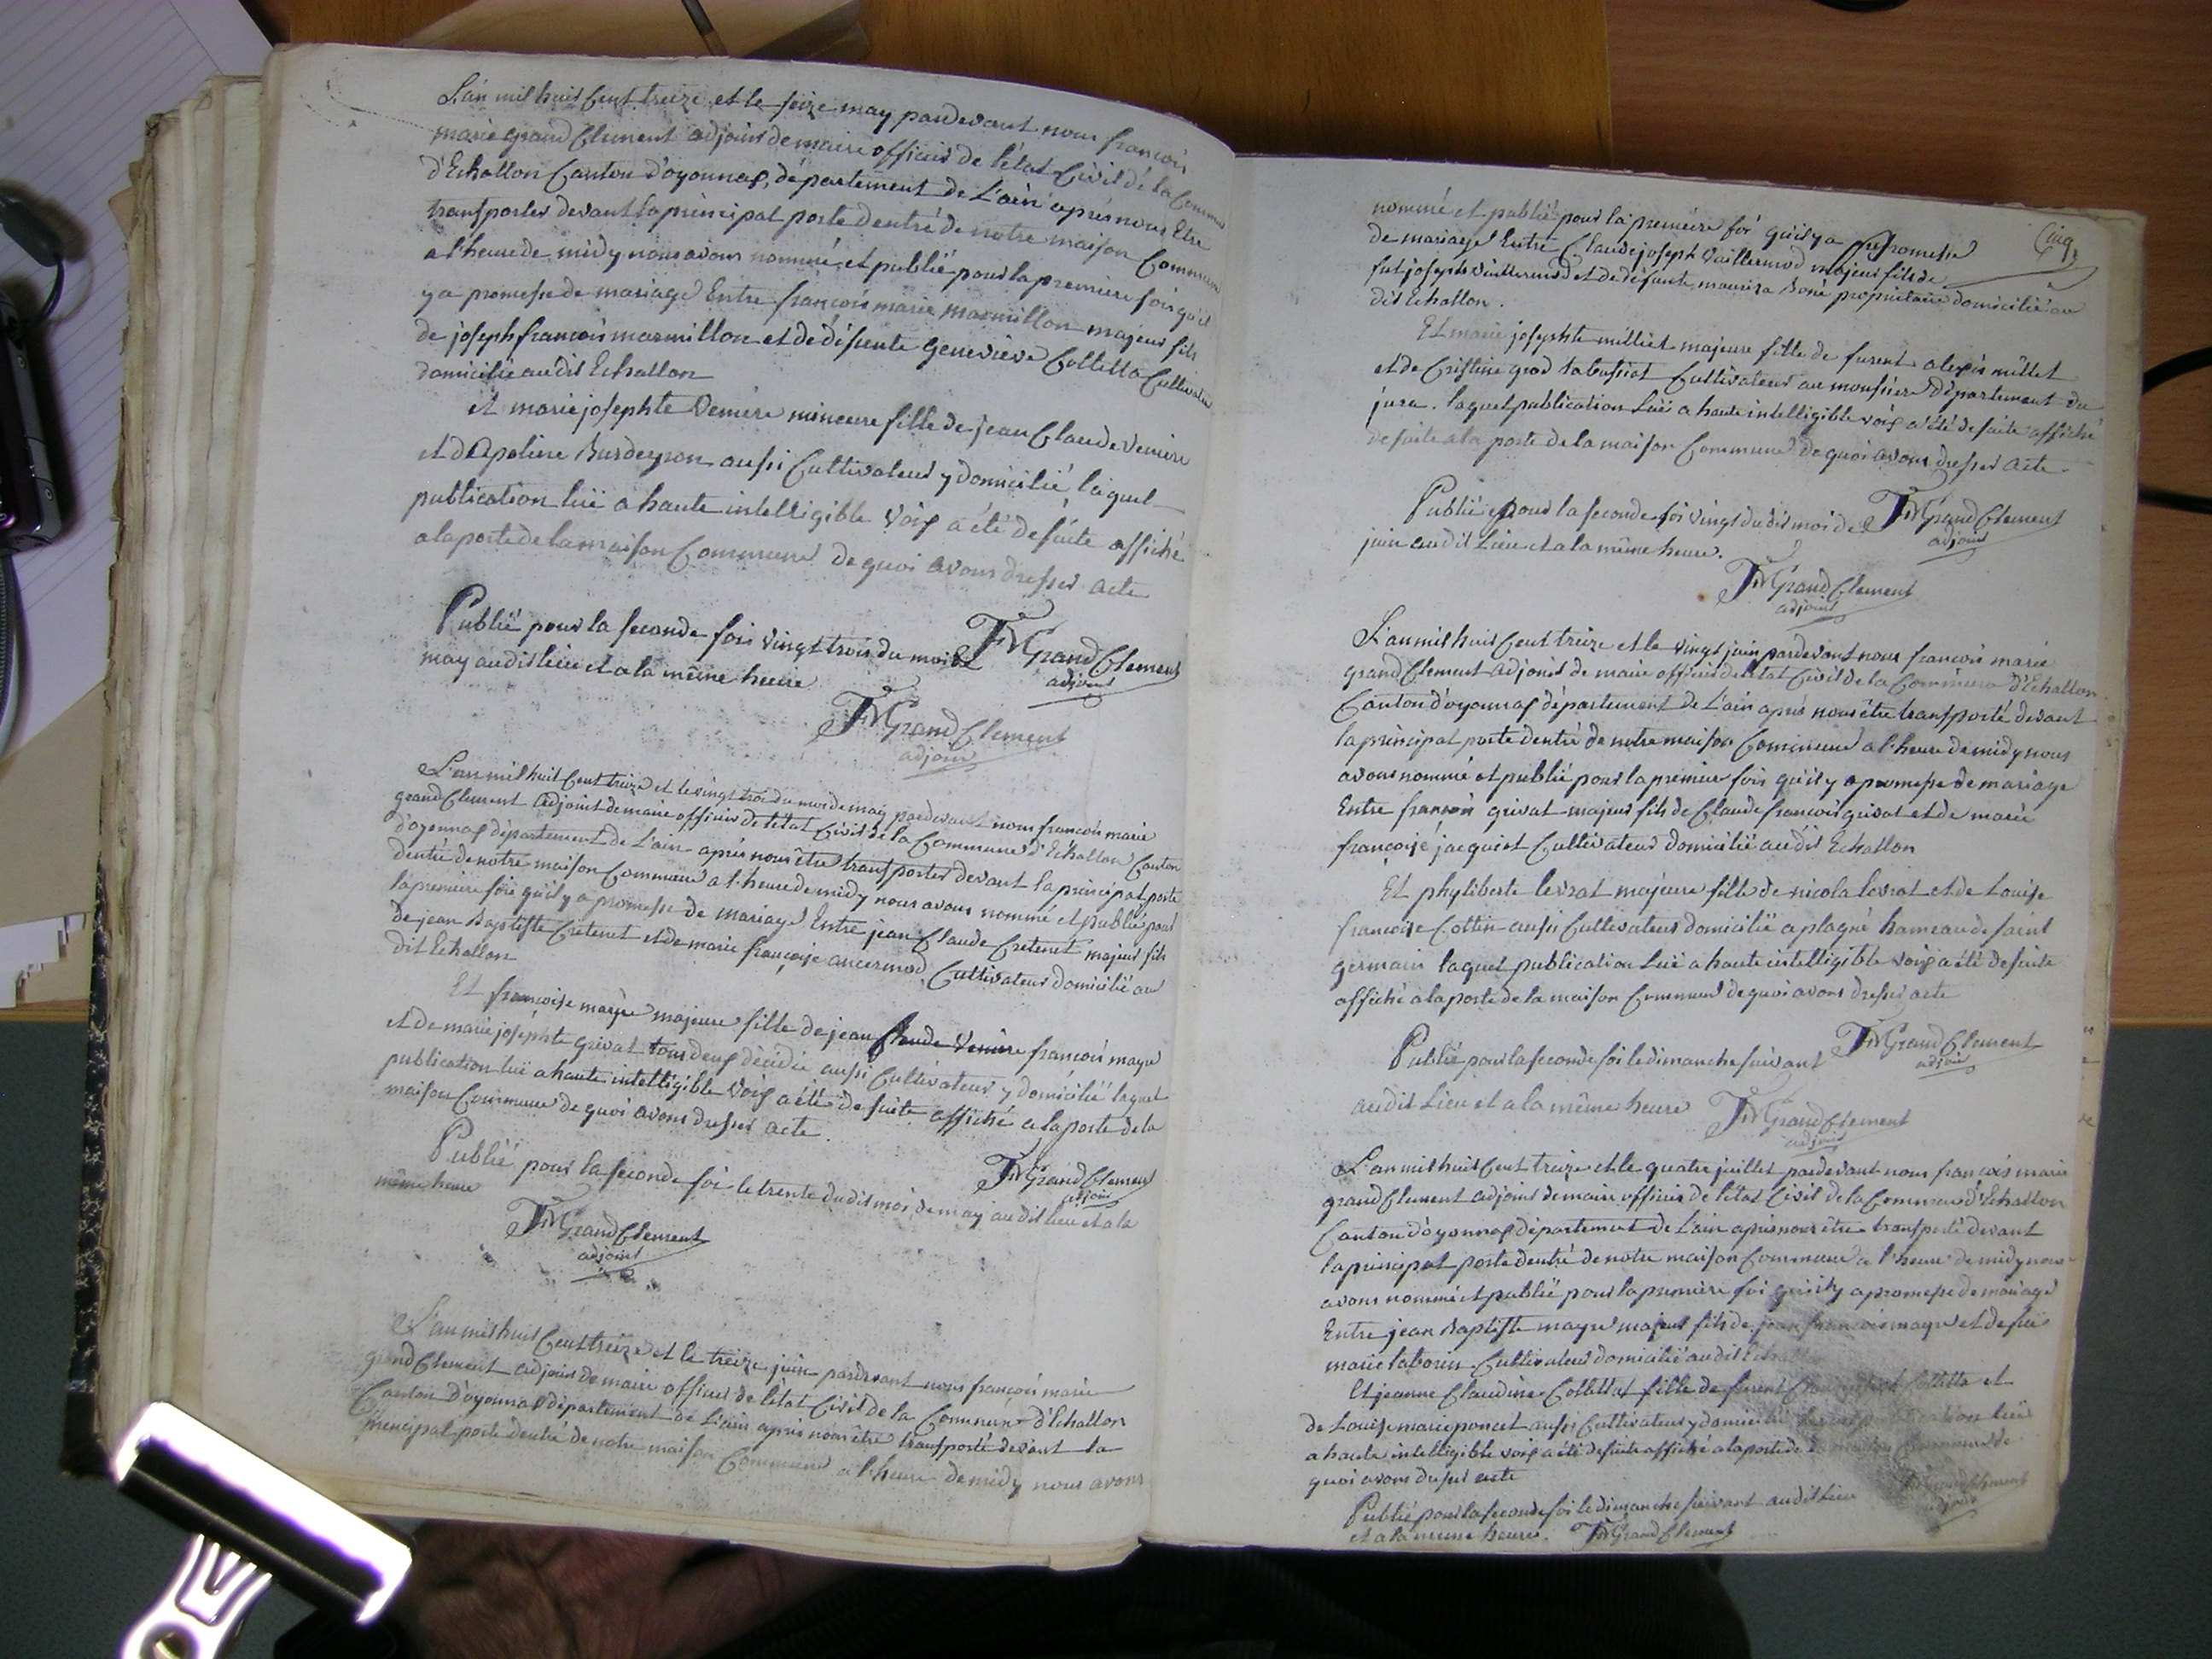 L'an mil huit Cent treize et le seize may pardevant nous françois
marie grand Clement adjoint de maire officier de l'état Civil de la Commune
d'Echallon Canton d'oyonnax, département de L'ain après nous Etre
transportes devant la principal porte dentré de notre maison Commune
a l'heure de midy nous avons nommé et publié pour la premiere fois qu'il
y a promesse de mariage Entre françois marie marmillon majeur fils
de joseph françois marmillon et de défunte Genevieve Colletta Cultivateur
domicilié audit Echallon
et marie josephte Veniere mineure fille de jean Claude Veniere
et d'Apoline Burdeyron aussi Cultivateur y domicilié, laquel
publication luë a haute intelligible Voix a été de suite affiché
a la porte de la maison Commune de quoi avons dressé acte
Publié pour la seconde fois vingt trois du mois de
F M Grand Clement
adjoint
may audit lieu et a la même heure
F M Grand Clement
adjoint
L'an mil huit Cent treize et le vingt trois du mois de may pardevant nous françois marie
grand Clement adjoint de maire officier de l'état Civil de la Commune d'Echallon Canton
d'oyonnax département de L'ain après nous être transportes devant la principal porte
dentré de notre maison Commune a l'heure de midy nous avons nommé et publié pour
la premiere fois qu'il y a promesse de mariage Entre jean Claude Cretenet majeur fils
de jean Baptiste Cretenet et de marie françoise ancermod Cultivateur domicilié au
dit Echallon
Et françoise mayre majeure fille de jean Claude Veniere françois mayre
et de marie josephte grivat tous deux décédé aussi Cultivateur y domicilié laquel
publication luë a haute intelligible Voix a été de suite affiché a la porte de la
maison Commune de quoi avons dressé acte.
F M Grand Clement
adjoint
Publié pour la seconde foi le trente dudit moi de may audit lieu et a la
même heure
F M Grand Clement
adjoint
L'an mil huit Cent treize et le treize juin pardevant nous françois marie
grand Clement adjoint de maire officier de l'état Civil de la Commune d'Echallon
Canton d'oyonnax département de L'ain après nous être transporté devant la
principal porte dentré de notre maison Commune a l'heure de midy nous avons
Cinq
nommé et publié pour la premiere foi qu'il y a promesse
de mariage Entre Claude joseph Vuillermod majeur fils de
fut joseph Vuillermod et de défunte mauriza Boné propriétaire domicilié au
dit Echallon.
Et marie josephte milliet majeure fille de furent alexis millet
et de Cristine grod tabussiat Cultivateur au mousiere Département du
jura. laquel publication Luë a haute intelligible voix a été de suite affiché
de suite a la porte de la maison Commune de quoi avons dresser acte.
Publié pour la seconde foi vingt dudit moi de
F M Grand Clement
adjoint
juin audit Lieu et a la même heure.
F M Grand Clement
adjoint
L'an mil huit Cent treize et le vingt juin pardevant nous françois marie
grand Clement adjoint de maire officier de l'état Civil de la Commune d'Echallon
Canton d'oyonnax département de L'ain après nous être transporté devant
la principal porte dentré de notre maison Commune a l'heure de midy nous
avons nommé et publié pour la premiere fois qu'il y a promesse de mariage
Entre françois grivat majeur fils de Claude françois grivat et de marie
françoise jacquiot Cultivateur domicilié audit Echallon
Et phyliberte levrat majeure fille de nicola levrat et de Louise
françoise Cottin aussi Cultivateur domicilié a plagne hameau de saint
germain laquel publication Luë a haute intelligible voix a été de suite
affiché a la porte de la maison Commune de quoi avons dresser acte
F M Grand Clement
adjoint
Publié pour la seconde foi le dimanche suivant
audit Lieu et a la même heure
F M Grand Clement
adjoint
L'an mil huit Cent treize et le quatre juillet pardevant nous françois marie
grand Clement adjoint de maire officier de l'état Civil de la Commune d'Echallon
Canton d'oyonnax département de L'ain après nous être transporté devant
la principal porte dentré de notre maison Commune a l'heure de midy nous
avons nommé et publié pour la premiere foi qu'il y a promesse de mariage
Entre jean Baptiste mayre majeur fils de jean françois mayre et de
marie taborin Cultivateur domicilié audit Echallon
Et jeanne Claudine Collettat fille de furent Colletta et
de Louise marie poncet aussi Cultivateur y domicilié laquel publication luë
a haute intelligible voix a été de suite affiché a la porte de la maison Commune de
quoi avons dresser acte
Grand Clement
adjoint
Publié pour la seconde foi le dimanche suivant audit Lieu
et a la meme heure.
F M Grand Clement